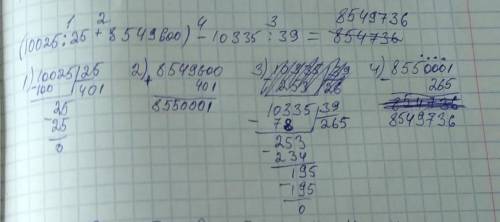 1 2 4 3 8549736
(10025:25+8549600)-10335:39=
1) 10025|25 2) 8549600 3) 4) 8550001
-100 |401 + 401 - 265
25 8550001 10335|39 8549736
-25 - 78 |265
0 253
- 234
195
- 195
0